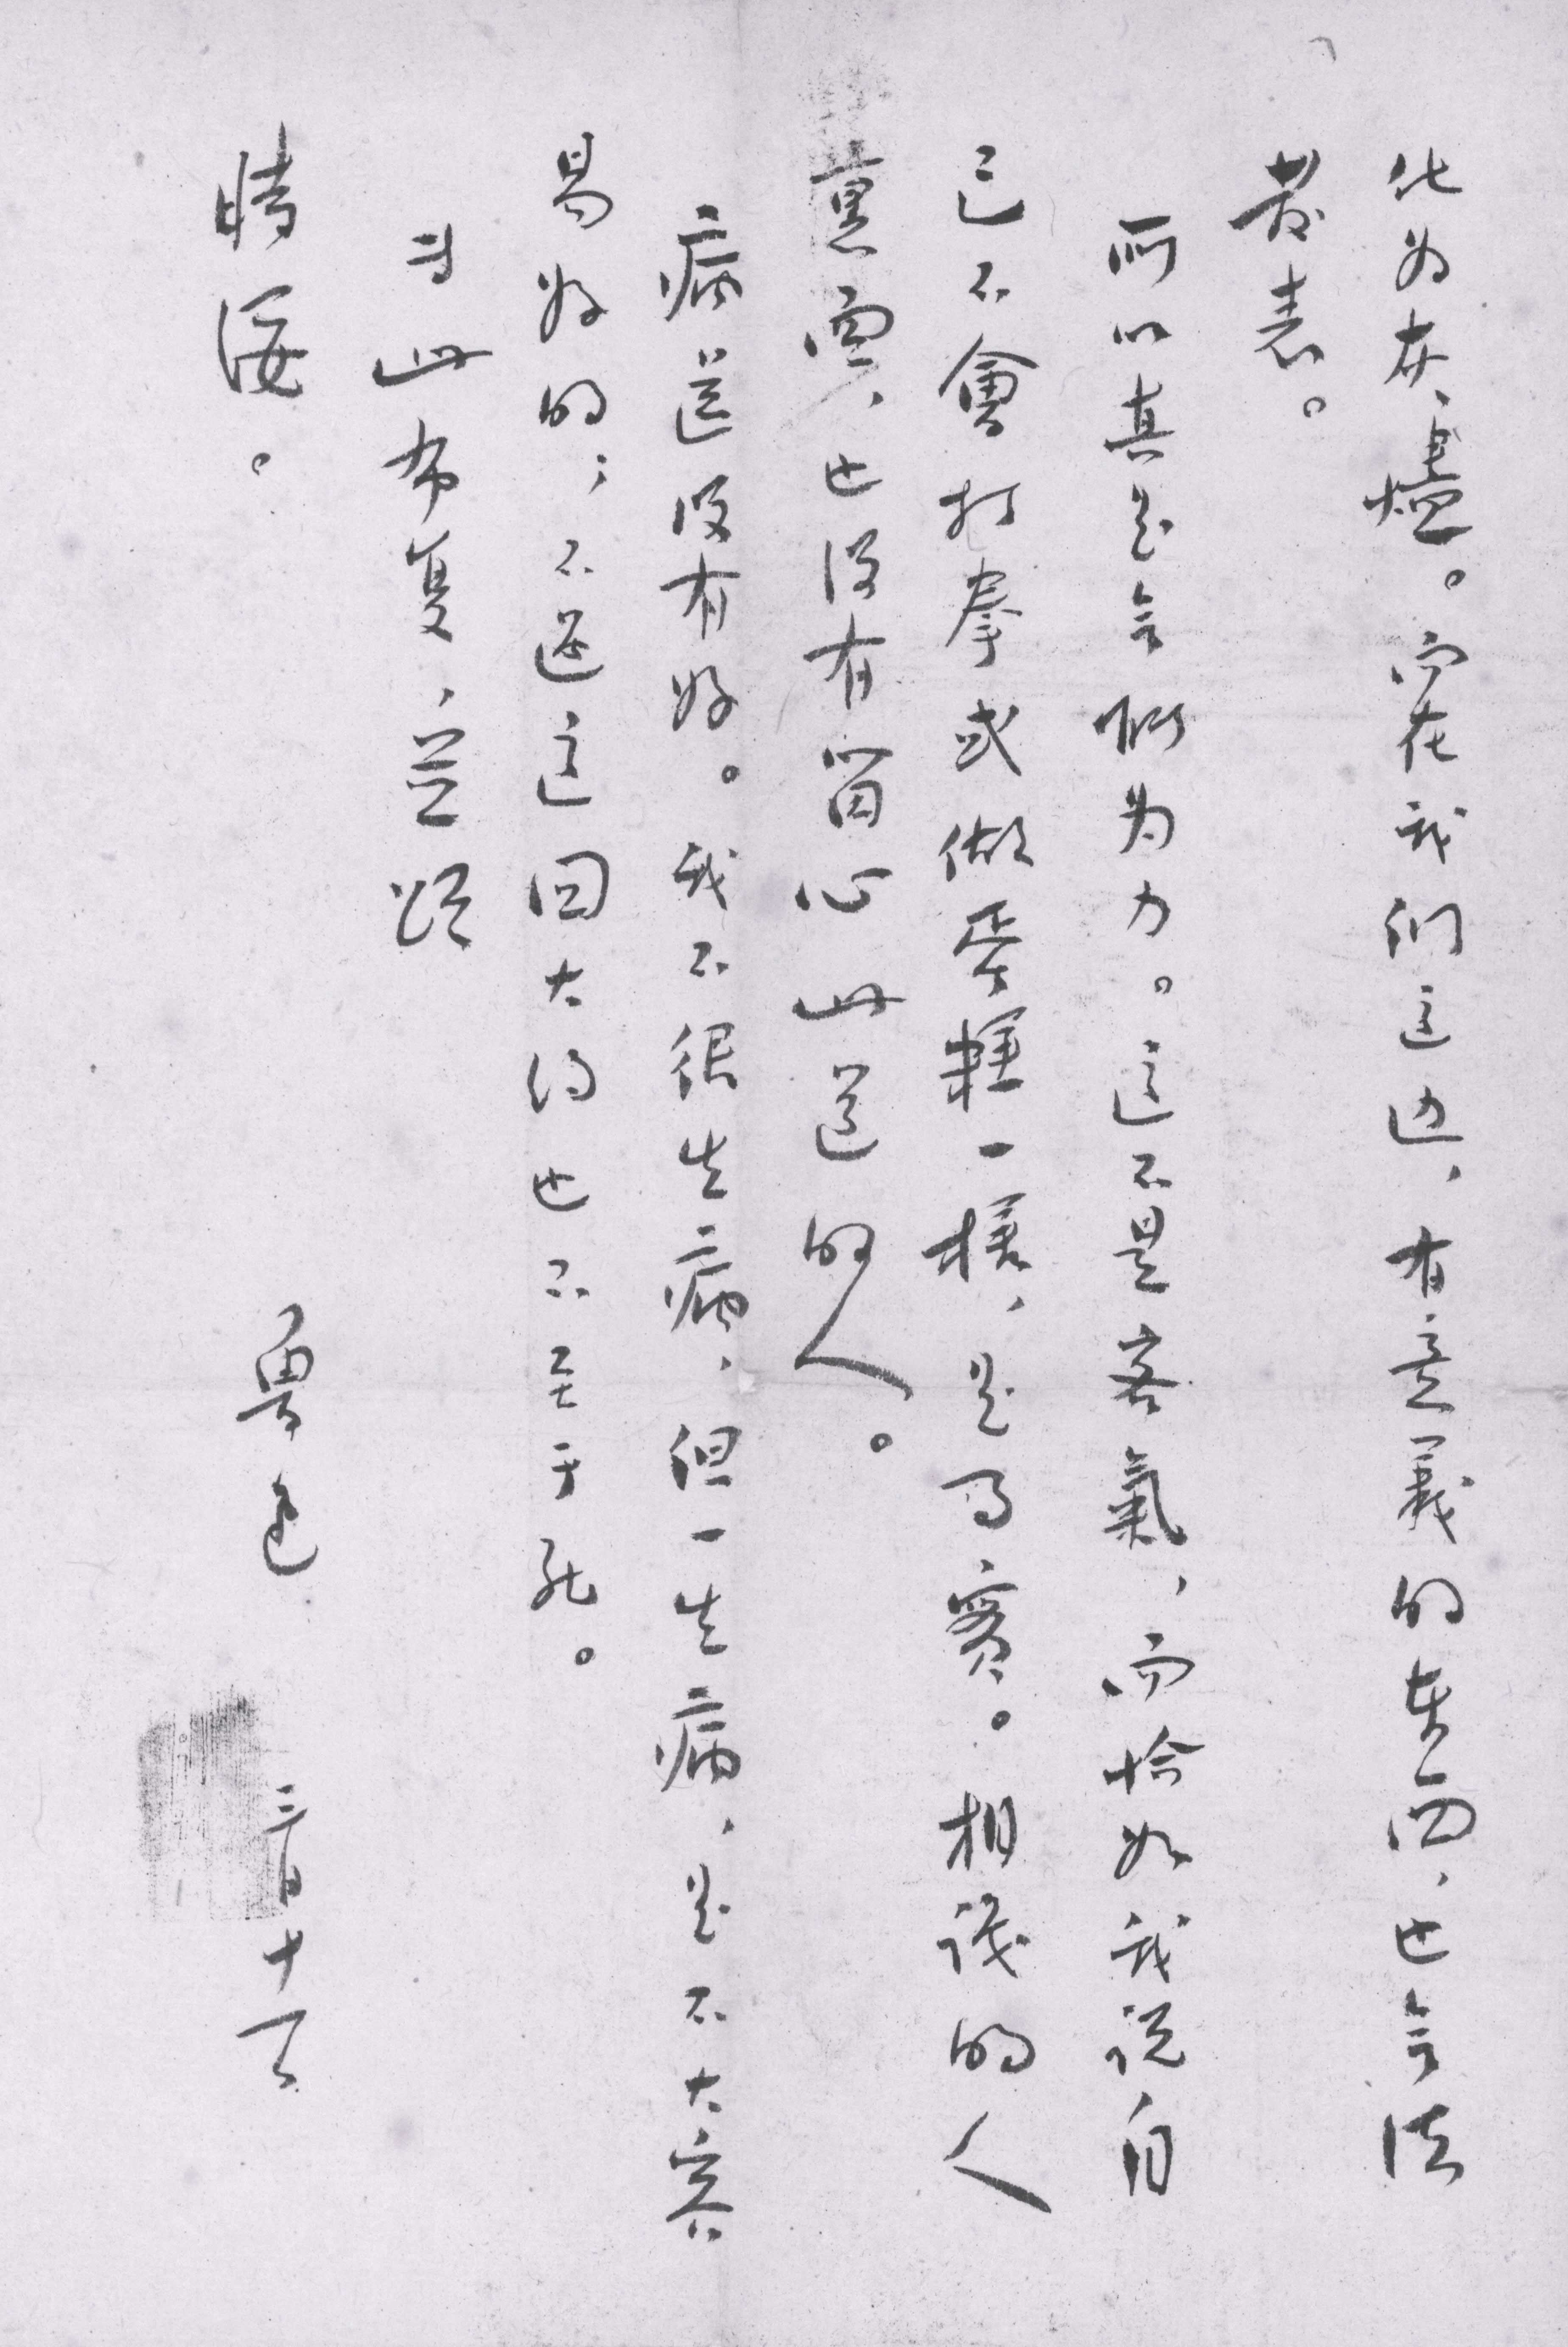 化为灰燼。而在我们这边，有意義的东西，也無法
发表。
所以真是無能为力。这不是客氣，而恰如我说自
己不會打拳或做蛋糕一様，是事實。相識的人
裏面，也没有留心此道的人。
病还没有好。我不很生病，但一生病，是不大容
易好的；不过这回大约也不至于死。
专此布复，並頌
時绥。
魯迅 三月十一日